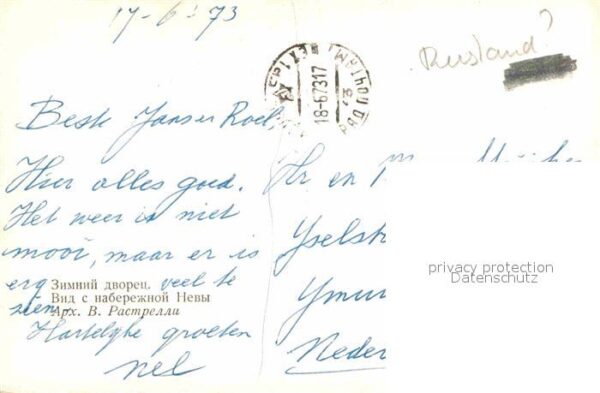 17-6-'73
Rusland?
18-6-73 17
Beste Jans en Roel,
Hier alles goed.
Het weer is niet
mooi, maar er is
erg veel te
zien.
Hartelijke groeten
Nel
Зимний дворец.
Вид с набережной Невы
Арх. В. Растрелли
Hr en
Yselst
Ymui
Neder
privacy protection
Datenschutz